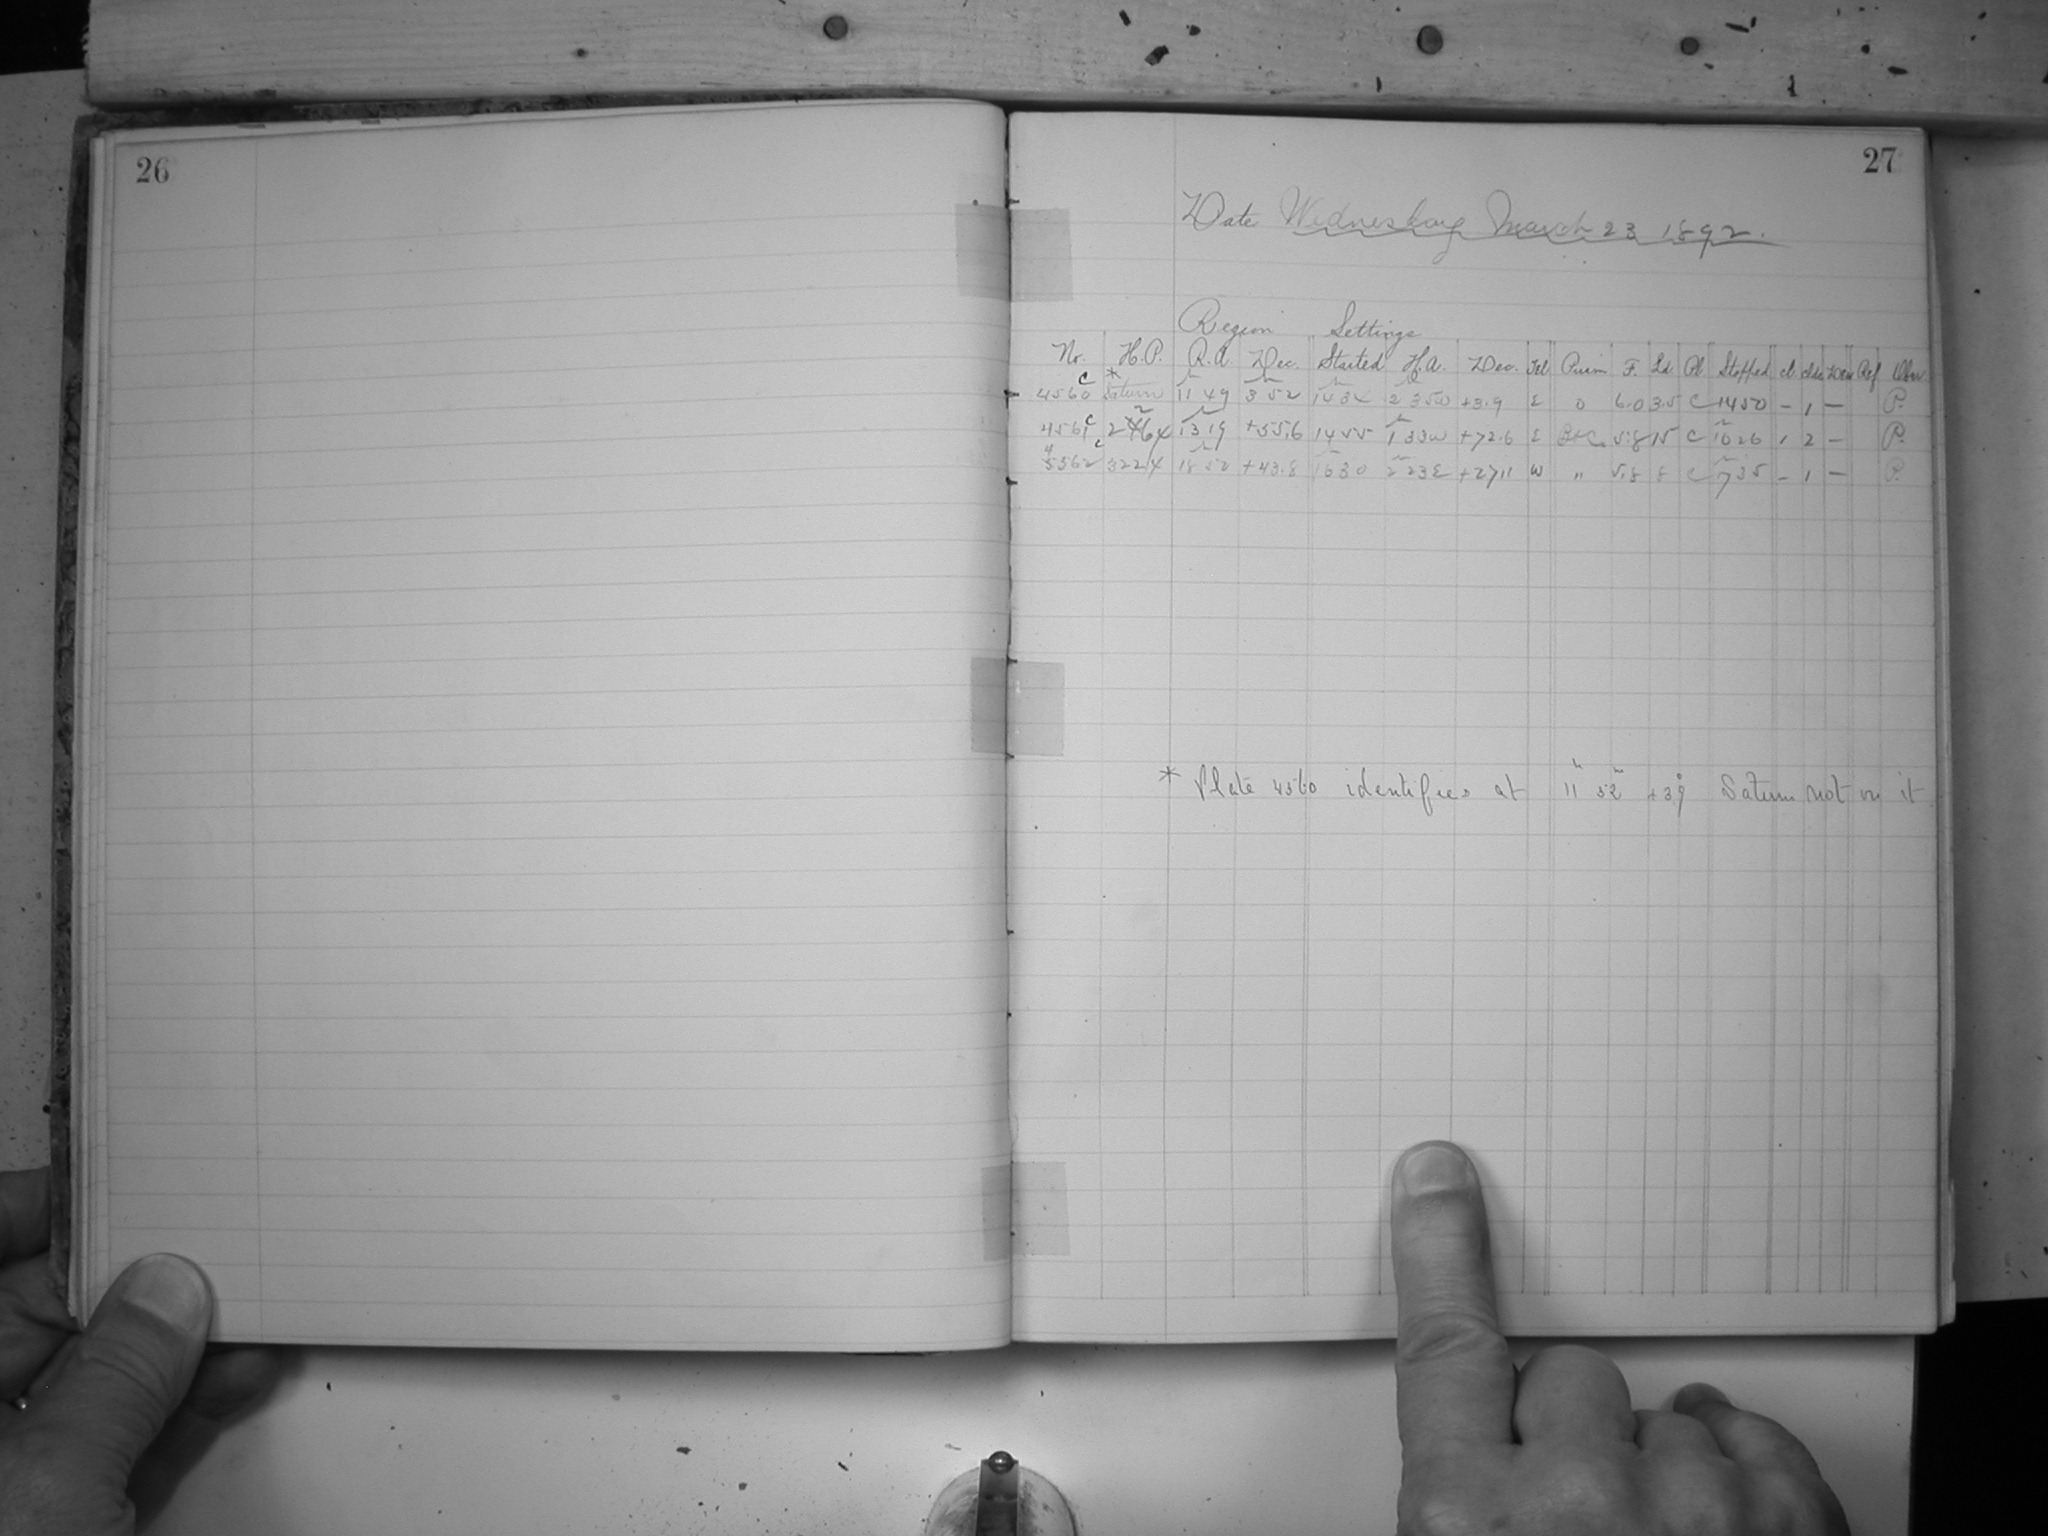 26
27
Date Wednesday March 23 1892.
Region Settings
No. H.P. R.A. Dec. Started H.A. Dec. Tel Prism F. Sd. Pl. Stopped cl. Ref Obs.
4560 c * Saturn 11 49 3 52 1434 2 35W +3.9 E 0 6.0 35 C 1450 – 1 – P.
4561 c 13 19 +55.6 1455 1 33W +72.6 E 5.8 15 C 1626 1 2 – P.
3224 18 52 +43.8 1630 2 23E W " 5.8 8 C 1735 – 1 – P.
* Plate 4560 identifies at 11h 52m +3.9 Saturn not on it